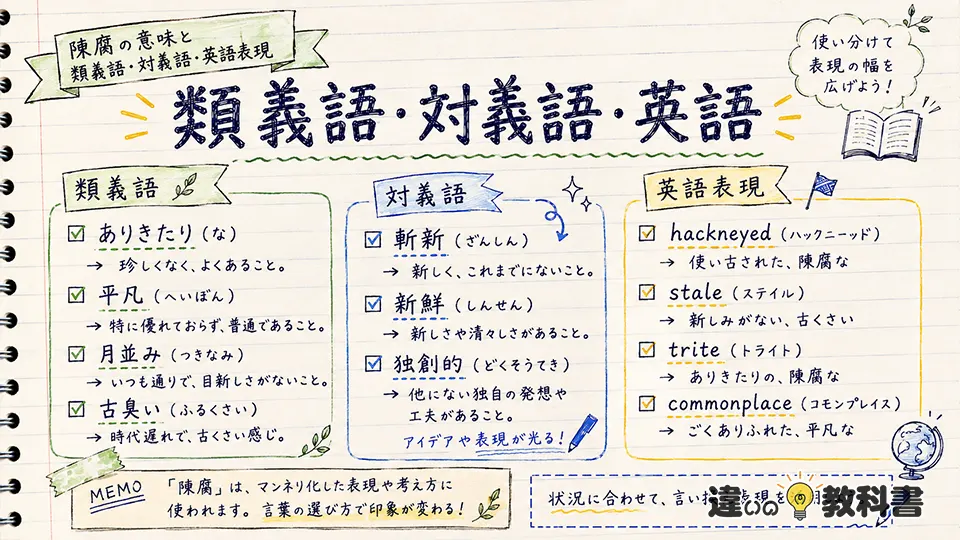 陳腐の意味と
類義語・対義語・英語表現
類義語・対義語・英語
使い分けて
表現の幅を
広げよう！
類義語
ありきたり（な）
→ 珍しくなく、よくあること。
平凡（へいぼん）
→ 特に優れておらず、普通であること。
月並み（つきなみ）
→ いつも通りで、目新しさがないこと。
古臭い（ふるくさい）
→ 時代遅れで、古くさい感じ。
対義語
斬新（ざんしん）
→ 新しく、これまでにないこと。
新鮮（しんせん）
→ 新しさや清々しさがあること。
独創的（どくそうてき）
→ 他にない独自の発想や
工夫があること。
アイデアや表現が光る！
英語表現
hackneyed（ハックニーッド）
→ 使い古された、陳腐な
stale（ステイル）
→ 新しみがない、古くさい
trite（トライト）
→ ありきたりの、陳腐な
commonplace（コモンプレイス）
→ ごくありふれた、平凡な
MEMO
「陳腐」は、マンネリ化した表現や考え方に
使われます。言葉の選び方で印象が変わる！
状況に合わせて、言い 表現を
違いの教科書